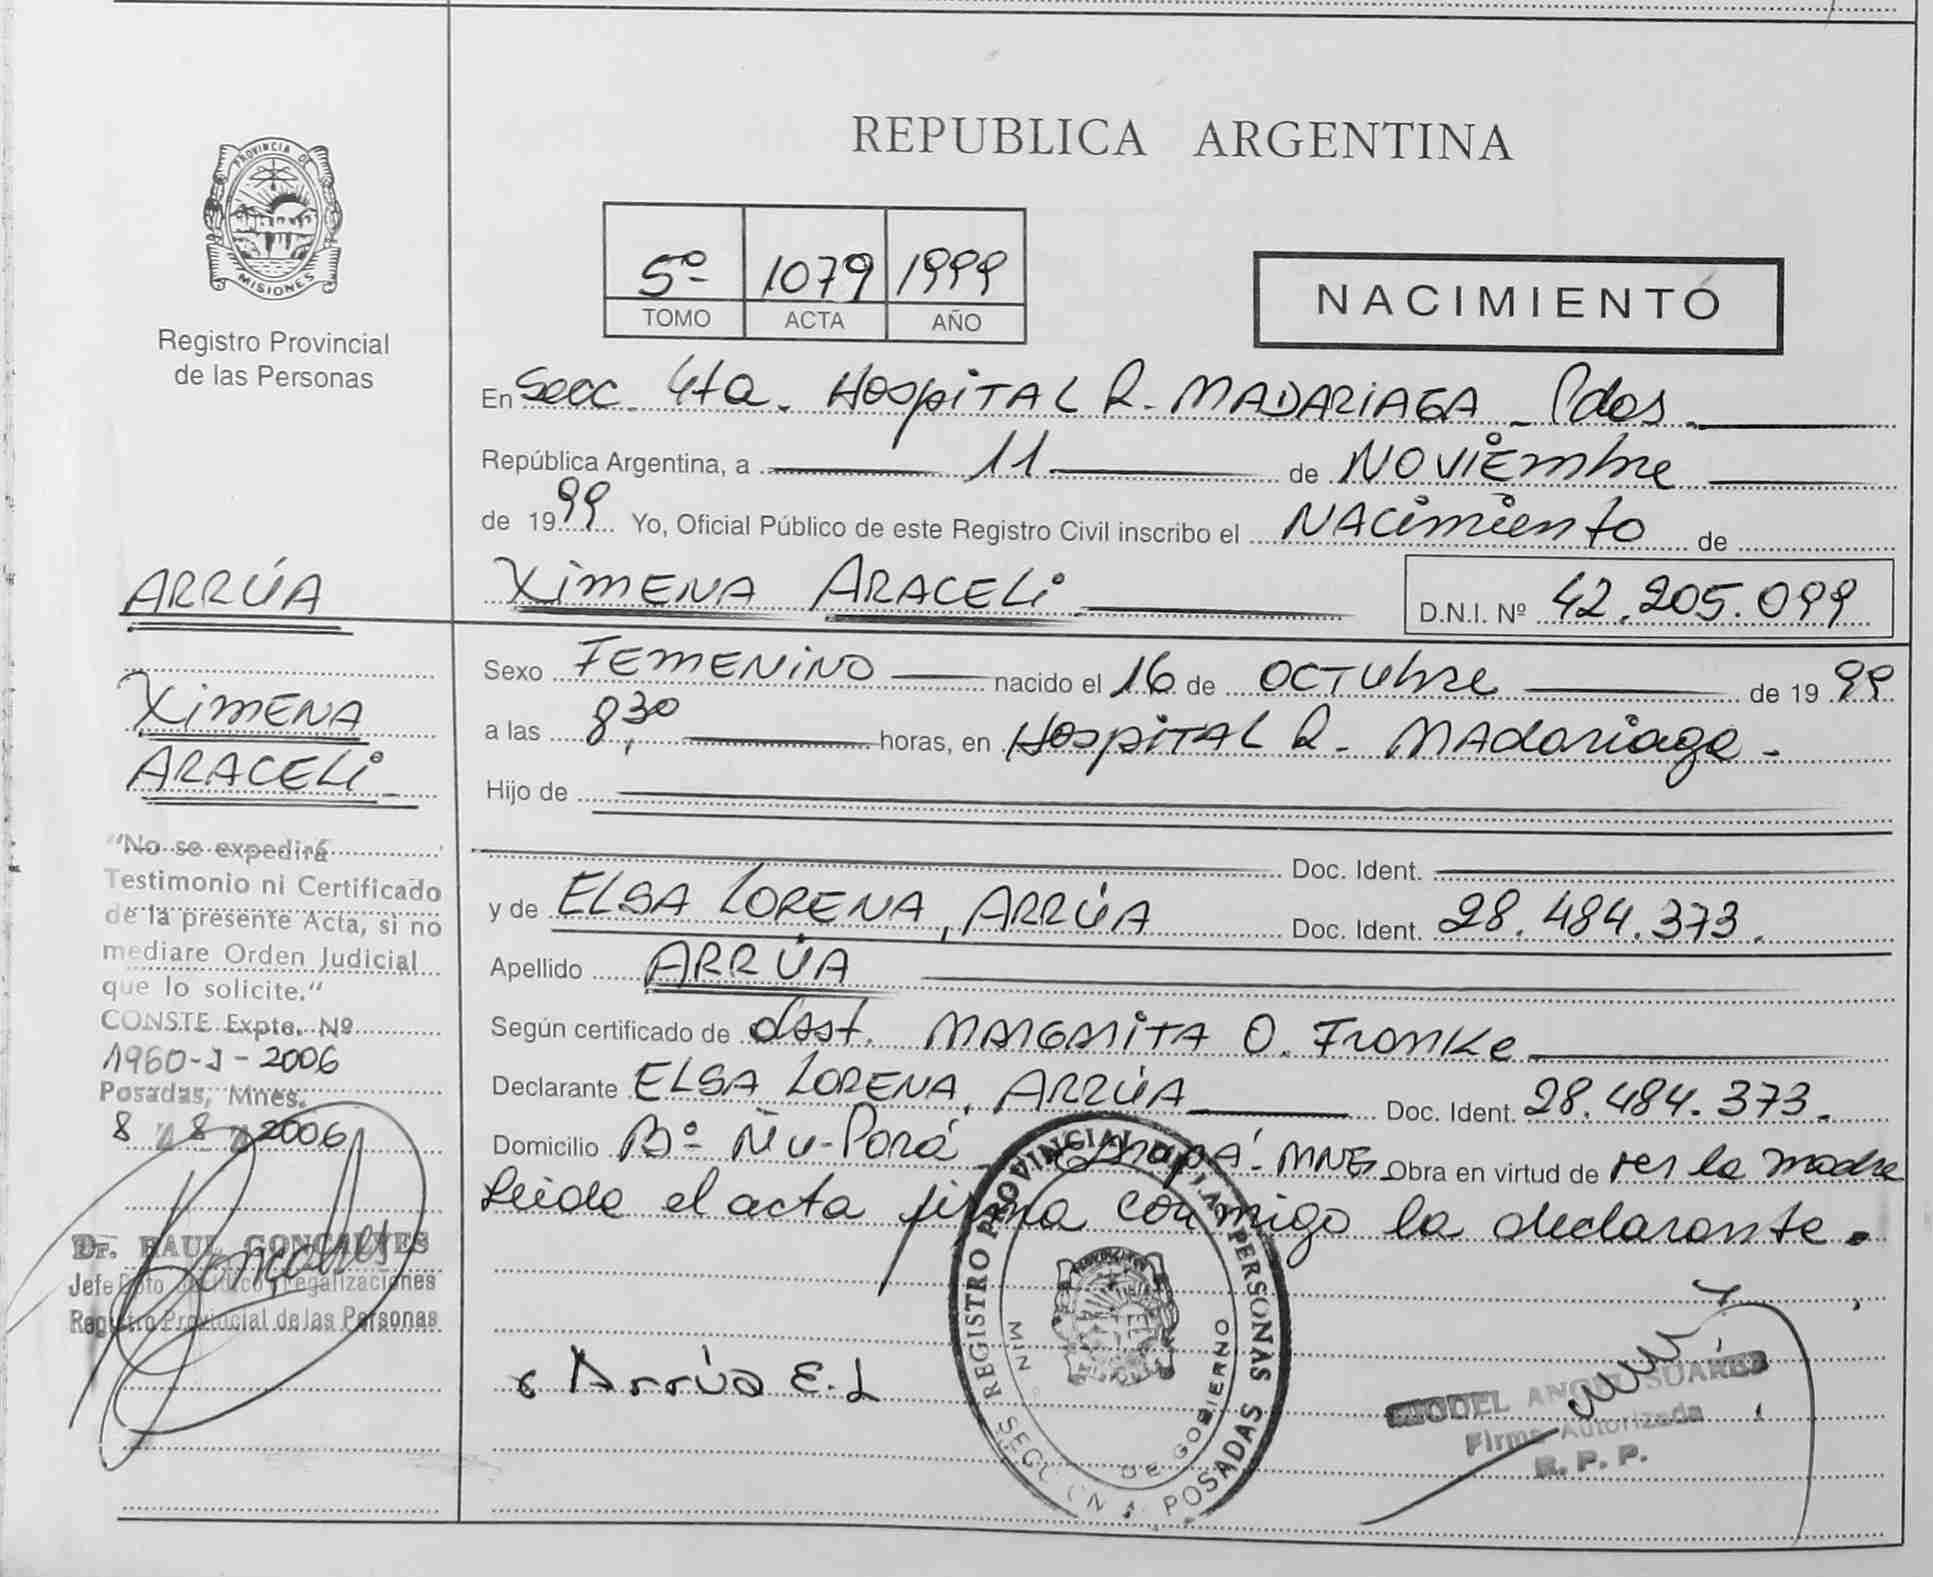 REPUBLICA ARGENTINA
PROVINCIA DE
MISIONES
Registro Provincial
de las Personas
5º 1079 1999
TOMO ACTA AÑO
NACIMIENTO
En Secc. 4ta. HOSPITAL R. MADARIAGA - Pdas.
República Argentina, a 11 de NOVIEMbre
de 1999 Yo, Oficial Público de este Registro Civil inscribo el NACimiento de
XIMENA ARACELI
D.N.I. Nº 42.205.099
Sexo FEMENINO nacido el 16 de OCTUbre de 1999
a las 8,30 horas, en HOSPITAL R. MAdariaga -
Hijo de
Doc. Ident.
y de ELSA LORENA, ARRÚA Doc. Ident. 28.484.373.
Apellido ARRÚA
Según certificado de MARGARITA O.
Declarante ELSA LORENA, ARRÚA Doc. Ident. 28.484.373.
Domicilio Bº ÑU-Porá MNES Obra en virtud de ser la madre
Leida el acta firma conmigo la declarante.
Arrúa E.L
ARRÚA
XIMENA
ARACELI
"No se expedirá
Testimonio ni Certificado
de la presente Acta, si no
mediare Orden Judicial
que lo solicite."
CONSTE Expte. Nº
1960-J-2006
Posadas, Mnes.
8 8 2006
Dr. RAUL GONCALVES
Jefe Dpto. Jurídico Legalizaciones
Registro Provincial de las Personas
REGISTRO PROVINCIAL DE LAS PERSONAS
DE GOBIERNO
POSADAS
ANGEL SUAREZ
Firma Autorizada
R. P. P.